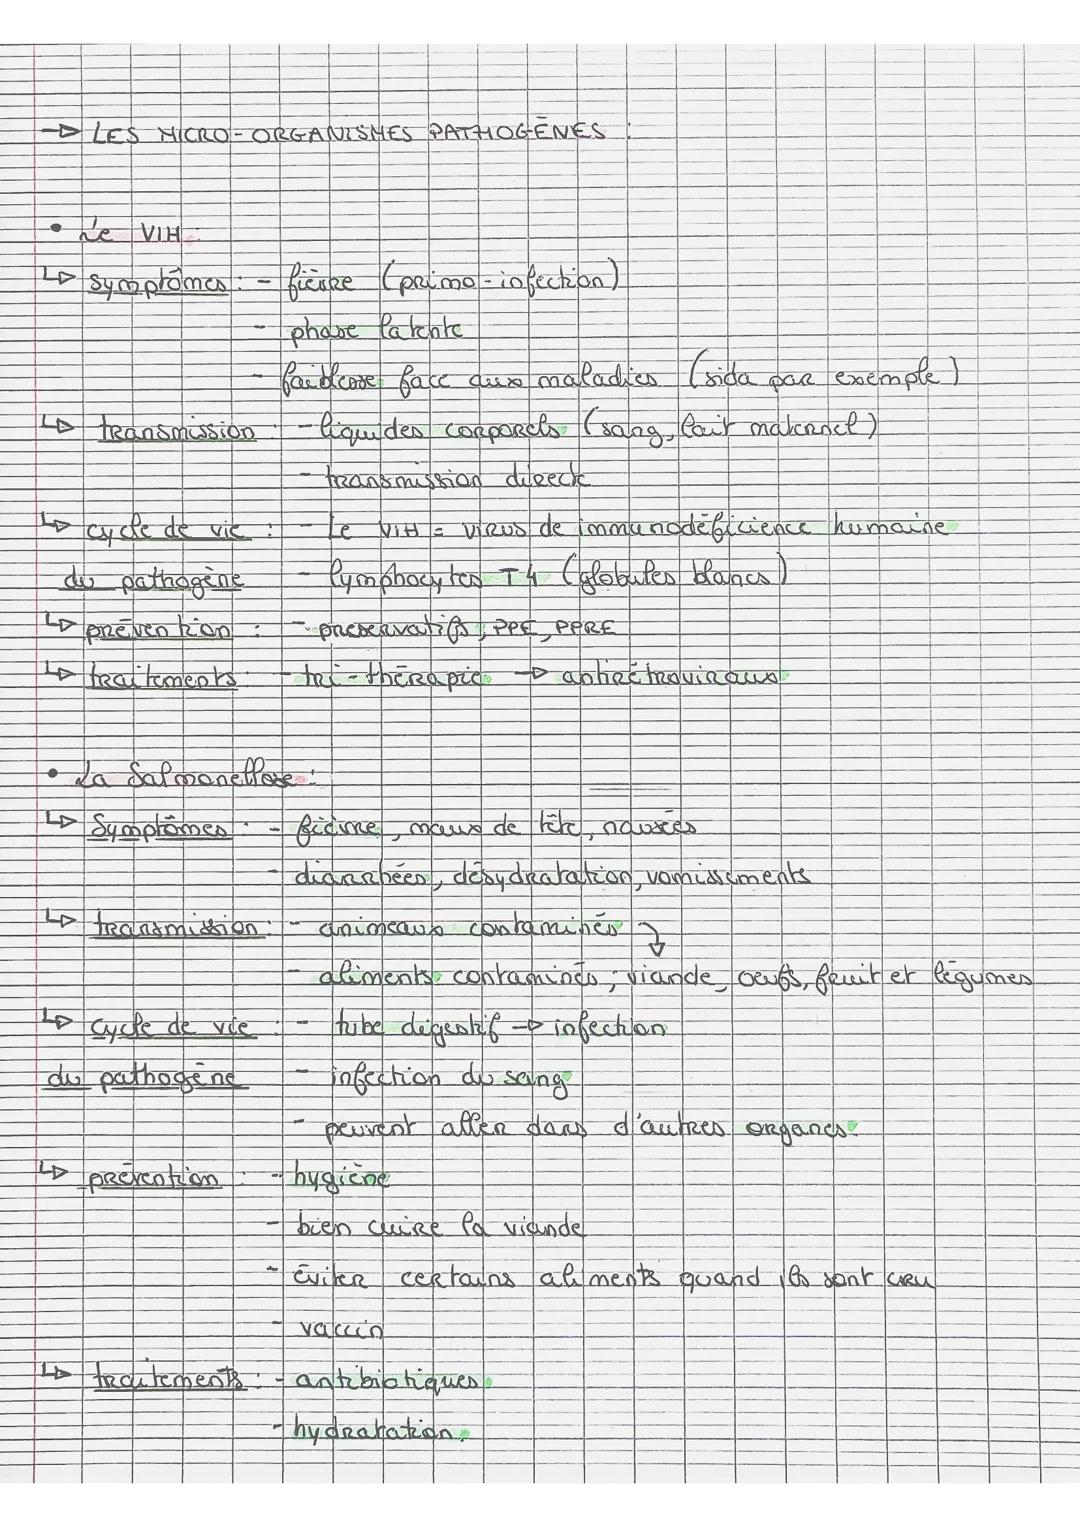 → LES MICRO-ORGANISMES PATHOGÈNES :
• Le VIH :
↳ symptômes : - fièvre (primo-infection)
- phase latente
- faiblesse face aux maladies (sida par exemple)
↳ transmission : - liquides corporels (sang, lait maternel)
- transmission directe
↳ cycle de vie : - Le VIH = virus de immunodéficience humaine
du pathogène - lymphocytes T4 (globules blancs)
↳ prévention : - preservatifs, PPE, PPRE
↳ traitements : - tri-thérapie → antirétroviraux
• La Salmonellose :
↳ Symptômes : - fièvre, maux de tête, nausées
- diarrhées, désydratation, vomissements
↳ transmission : - animeaux contaminés ↴
- aliments contaminés ; viande, oeufs, fruit et légumes
↳ cycle de vie : - tube digestif → infection
du pathogène - infection du sang
- peuvent aller dans d'autres organes.
↳ prévention : - hygiène
- bien cuire la viande
- éviter certains aliments quand ils sont cru
- vaccin
↳ traitements : - antibiotiques
- hydratation.